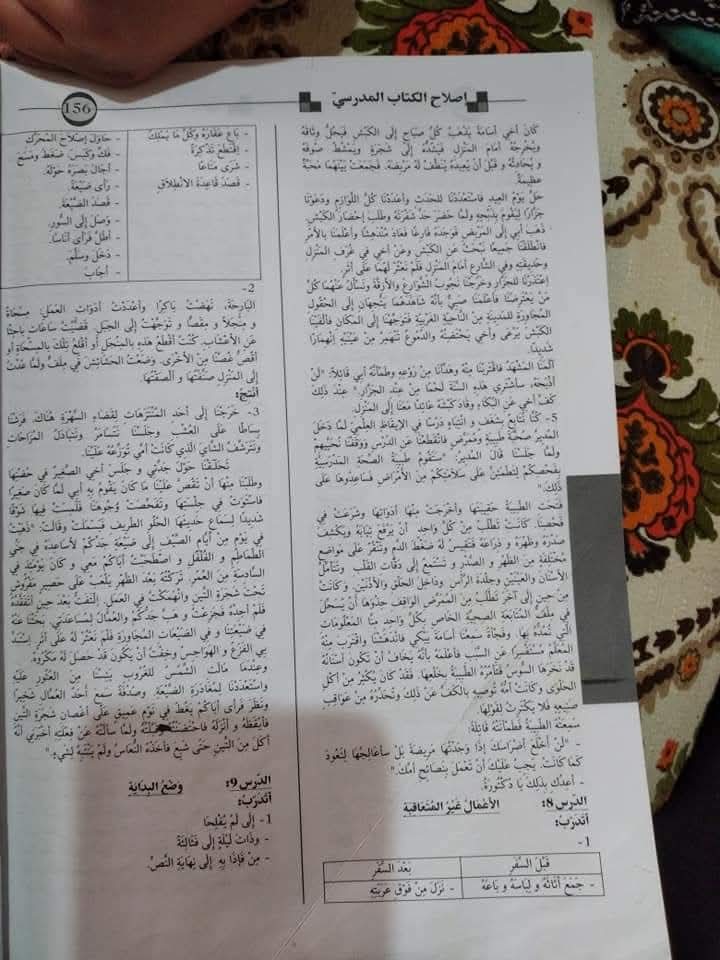 اصلاح الكتاب المدرسيّ
156
كَانَ أَخِي أُسَامَةُ يَذْهَبُ كُلَّ صَبَاحٍ إِلَى الكَبْشِ فَيَحُلُّ وِثَاقَهُ
وَيُخْرِجُهُ أَمَامَ المَنْزِلِ فَيَشُدُّهُ إِلَى شَجَرَةٍ وَيُمَشِّطُ صُوفَهُ
وَ يُحَادِثُهُ وَ قَبْلَ أَنْ يُعِيدَهُ يُنَظِّفُ لَهُ مَرْبِضَهُ. فَجَمَعَتْ بَيْنَهُمَا مَحَبَّةٌ
عَظِيمَةٌ.
حَلَّ يَوْمُ العِيدِ فَاسْتَعْدَدْنَا لِلْحَدَثِ وَأَعْدَدْنَا كُلَّ اللَّوَازِمِ وَدَعَوْنَا
جَزَّارًا لِيَقُومَ بِذَبْحِهِ وَلَمَّا حَضَرَ حَدَّ شَفْرَتَهُ وَطَلَبَ إِحْضَارَ الكَبْشِ
ذَهَبَ أَبِي إِلَى المَرْبِضِ فَوَجَدَهُ فَارِغًا فَعَادَ مُنْدَهِشًا وَأَعْلَمَنَا بِالأَمْرِ
فَانْطَلَقْنَا جَمِيعًا نَبْحَثُ عَنِ الكَبْشِ وَعَنْ أَخِي فِي غُرَفِ المَنْزِلِ
وَحَدِيقَتِهِ وَفِي الشَّارِعِ أَمَامَ المَنْزِلِ فَلَمْ نَعْثُرْ لَهُمَا عَلَى أَثَرٍ.
اِعْتَذَرْنَا لِلْجَزَّارِ وَخَرَجْنَا نَجُوبُ الشَّوَارِعَ وَالأَزِقَّةَ وَنَسْأَلُ عَنْهُمَا كُلَّ
مَنْ يَعْتَرِضُنَا فَأَعْلَمَنَا صَبِيٌّ بِأَنَّهُ شَاهَدَهُمَا يَتَّجِهَانِ إِلَى الحُقُولِ
المُجَاوِرَةِ لِلْمَدِينَةِ مِنَ النَّاحِيَةِ الغَرْبِيَّةِ فَتَوَجَّهْنَا إِلَى المَكَانِ فَأَلْفَيْنَا
الكَبْشَ يَرْعَى وَأَخِي يَحْتَضِنُهُ وَالدُّمُوعُ تَنْهَمِرُ مِنْ عَيْنَيْهِ اِنْهِمَارًا
شَدِيدًا.
آلَمَنَا المَشْهَدُ فَاقْتَرَبْنَا مِنْهُ وَهَدَّأْنَا مِنْ رَوْعِهِ وَطَمْأَنَهُ أَبِي قَائِلًا: "لَنْ
أَذْبَحَهُ، سَأَشْتَرِي هَذِهِ السَّنَةَ لَحْمًا مِنْ عِنْدِ الجَزَّارِ." عِنْدَ ذَلِكَ
كَفَّ أَخِي عَنِ البُكَاءِ وَقَادَ كَبْشَهُ عَائِدًا مَعَنَا إِلَى المَنْزِلِ.
5- كُنَّا نُتَابِعُ بِشَغَفٍ وَ انْتِبَاهٍ دَرْسًا فِي الإِيقَاظِ العِلْمِيِّ لَمَّا دَخَلَ
المُدِيرُ صُحْبَةَ طَبِيبَةٍ وَمُمَرِّضٍ فَانْقَطَعْنَا عَنِ الدَّرْسِ وَوَقَفْنَا لِتَحِيَّتِهِمْ
وَلَمَّا جَلَسْنَا قَالَ المُدِيرُ: "سَتَقُومُ طَبِيبَةُ الصِّحَّةِ المَدْرَسِيَّةِ
بِفَحْصِكُمْ لِتَطْمَئِنَّ عَلَى سَلَامَتِكُمْ مِنَ الأَمْرَاضِ فَسَاعِدُوهَا عَلَى
ذَلِكَ."
فَتَحَتِ الطَّبِيبَةُ حَقِيبَتَهَا وَأَخْرَجَتْ مِنْهَا أَدَوَاتِهَا وَشَرَعَتْ فِي
فَحْصِنَا. كَانَتْ تَطْلُبُ مِنْ كُلِّ وَاحِدٍ أَنْ يَرْفَعَ ثِيَابَهُ وَيَكْشِفَ
صَدْرَهُ وَظَهْرَهُ وَ ذِرَاعَهُ فَتَقِيسُ لَهُ ضَغْطَ الدَّمِ وَتَنْقُرُ عَلَى مَوَاضِعَ
مُخْتَلِفَةٍ مِنَ الظَّهْرِ وَ الصَّدْرِ وَ تَسْتَمِعُ إِلَى دَقَّاتِ القَلْبِ وَتَتَأَمَّلُ
الأَسْنَانَ وَالعَيْنَيْنِ وَجِلْدَةَ الرَّأْسِ وَدَاخِلَ الحَلْقِ وَالأُذُنَيْنِ. وَكَانَتْ
مِنْ حِينٍ إِلَى آخَرَ تَطْلُبُ مِنَ المُمَرِّضِ الوَاقِفِ حَذْوَهَا أَنْ يُسَجِّلَ
فِي مِلَفِّ المُتَابَعَةِ الصِّحِّيَّةِ الخَاصِّ بِكُلِّ وَاحِدٍ مِنَّا المَعْلُومَاتِ
الَّتِي تُمِدُّهُ بِهَا. وَفَجْأَةً سَمِعْنَا أُسَامَةَ يَبْكِي فَانْدَهَشْنَا وَاقْتَرَبَ مِنْهُ
المُعَلِّمُ مُسْتَفْسِرًا عَنِ السَّبَبِ فَأَعْلَمَهُ بِأَنَّهُ يَخَافُ أَنْ تَكُونَ أَسْنَانُهُ
قَدْ نَخَرَهَا السُّوسُ فَتَأْمُرَهُ الطَّبِيبَةُ بِخَلْعِهَا. فَقَدْ كَانَ يُكْثِرُ مِنْ أَكْلِ
الحَلْوَى وَكَانَتْ أُمُّهُ تُوصِيهِ بِالكَفِّ عَنْ ذَلِكَ وَتُحَذِّرُهُ مِنْ عَوَاقِبِ
صَنِيعِهِ فَلَا يَكْتَرِثُ لِقَوْلِهَا.
سَمِعَتْهُ الطَّبِيبَةُ فَطَمْأَنَتْهُ قَائِلَةً:
- "لَنْ أَخْلَعَ أَضْرَاسَكَ إِذَا وَجَدْتُهَا مَرِيضَةً بَلْ سَأُعَالِجُهَا لِتَعُودَ
كَمَا كَانَتْ. يَجِبُ عَلَيْكَ أَنْ تَعْمَلَ بِنَصَائِحِ أُمِّكَ."
- أَعِدُكِ بِذَلِكَ يَا دُكْتُورَةُ.
الدّرس 8: الأَعْمَالُ غَيْرُ المُتَعَاقِبَةِ
أَتَدَرَّبُ:
1-
قَبْلَ السَّفَرِ | بَعْدَ السَّفَرِ
- جَمَعَ أَثَاثَهُ وَ لِبَاسَهُ وَ بَاعَهُ | - نَزَلَ مِنْ فَوْقِ عَرَبَتِهِ
- بَاعَ عَقَارَهُ وَكُلَّ مَا يَمْلِكُ | - حَاوَلَ إِصْلَاحَ المُحَرِّكِ
- اِقْتَطَعَ تَذْكِرَةً | - فَكَّ وَكَبَسَ، ضَغَطَ وَمَسَحَ
- شَرَى مَتَاعًا | - أَجَالَ بَصَرَهُ حَوْلَهُ.
- قَصَدَ قَاعِدَةَ الاِنْطِلَاقِ | - رَأَى ضَيْعَةً.
- قَصَدَ الضَّيْعَةَ.
- وَصَلَ إِلَى السُّورِ.
- أَطَلَّ فَرَأَى أُنَاسًا.
- دَخَلَ وَسَلَّمَ.
- أَجَابَ
2-
البَارِحَةَ، نَهَضْتُ بَاكِرًا وَأَعْدَدْتُ أَدَوَاتِ العَمَلِ: مِسْحَاةً
وَ مِنْجَلًا وَ مِقَصًّا وَ تَوَجَّهْتُ إِلَى الجَبَلِ. قَضَّيْتُ سَاعَاتٍ بَاحِثًا
عَنِ الأَعْشَابِ. كُنْتُ أَقْطَعُ هَذِهِ بِالمِنْجَلِ أَوْ أَقْلَعُ تِلْكَ بِالمِسْحَاةِ أَوْ
أَقُصُّ غُصْنًا مِنَ الأُخْرَى. وَضَعْتُ الحَشَائِشَ فِي مِلَفٍّ وَلَمَّا عُدْتُ
إِلَى المَنْزِلِ صَنَّفْتُهَا وَ أَلْصَقْتُهَا.
أُنْتِجُ:
3- خَرَجْنَا إِلَى أَحَدِ المُنْتَزَهَاتِ لِقَضَاءِ السَّهْرَةِ هُنَاكَ. فَرَشْنَا
بِسَاطًا عَلَى العُشْبِ وَجَلَسْنَا نَتَسَامَرُ وَنَتَبَادَلُ المُزَاحَاتِ
وَنَتَرَشَّفُ الشَّايَ الَّذِي كَانَتْ أُمِّي تُوَزِّعُهُ عَلَيْنَا.
تَحَلَّقْنَا حَوْلَ جَدَّتِي وَ جَلَسَ أَخِي الصَّغِيرُ فِي حُضْنِهَا
وَطَلَبْنَا مِنْهَا أَنْ تَقُصَّ عَلَيْنَا مَا كَانَ يَقُومُ بِهِ أَبِي لَمَّا كَانَ صَغِيرًا
فَاسْتَوَتْ فِي جِلْسَتِهَا وَتَفَحَّصَتْ وُجُوهَنَا فَلَمَسَتْ فِيهَا شَوْقًا
شَدِيدًا لِسَمَاعِ حَدِيثِهَا الحُلْوِ الطَّرِيفِ فَبَسْمَلَتْ وَقَالَتْ: "ذَهَبْتُ
فِي يَوْمٍ مِنْ أَيَّامِ الصَّيْفِ إِلَى ضَيْعَةِ جَدِّكُمْ لِأُسَاعِدَهُ فِي جَنْيِ
الطَّمَاطِمِ وَ الفُلْفُلِ وَ اصْطَحَبْتُ أَبَاكُمْ مَعِي وَ كَانَ يَوْمَئِذٍ فِي
السَّادِسَةِ مِنَ العُمُرِ. تَرَكْتُهُ بَعْدَ الظُّهْرِ يَلْعَبُ عَلَى حَصِيرٍ مَفْرُوشٍ
تَحْتَ شَجَرَةِ التِّينِ وَانْهَمَكْتُ فِي العَمَلِ. اِلْتَفَتُّ بَعْدَ حِينٍ لِتَفَقُّدِهِ
فَلَمْ أَجِدْهُ فَجَزِعْتُ وَ هَبَّ جَدُّكُمْ وَالعُمَّالُ لِمُسَاعَدَتِي. بَحَثْنَا عَنْهُ
فِي ضَيْعَتِنَا وَ فِي الضَّيْعَاتِ المُجَاوِرَةِ فَلَمْ نَعْثُرْ لَهُ عَلَى أَثَرٍ. اِسْتَبَدَّ
بِي الفَزَعُ وَ الهَوَاجِسُ وَخِفْتُ أَنْ يَكُونَ قَدْ حَصَلَ لَهُ مَكْرُوهٌ.
وَعِنْدَمَا مَالَتِ الشَّمْسُ لِلْغُرُوبِ يَئِسْنَا مِنَ العُثُورِ عَلَيْهِ
وَاسْتَعْدَدْنَا لِمُغَادَرَةِ الضَّيْعَةِ. وَصُدْفَةً سَمِعَ أَحَدُ العُمَّالِ شَخِيرًا
وَنَظَرَ فَرَأَى أَبَاكُمْ يَغُطُّ فِي نَوْمٍ عَمِيقٍ عَلَى أَغْصَانِ شَجَرَةِ التِّينِ
فَأَيْقَظَهُ وَ أَنْزَلَهُ فَاحْتَضَنْتُهُ وَلَمَّا سَأَلْتُهُ عَنْ فَعْلَتِهِ أَخْبَرَنِي أَنَّهُ
أَكَلَ مِنَ التِّينِ حَتَّى شَبِعَ فَأَخَذَهُ النُّعَاسُ وَلَمْ يَنْتَبِهْ لِشَيْءٍ."
الدّرس 9: وَضْعُ البِدَايَةِ
أَتَدَرَّبُ:
1- إِلَى لَمْ يُفْلِحَا
- وَذَاتَ لَيْلَةٍ إِلَى قَائِلَةً
- مِنْ فَإِذَا بِهِ إِلَى نِهَايَةِ النَّصِّ.